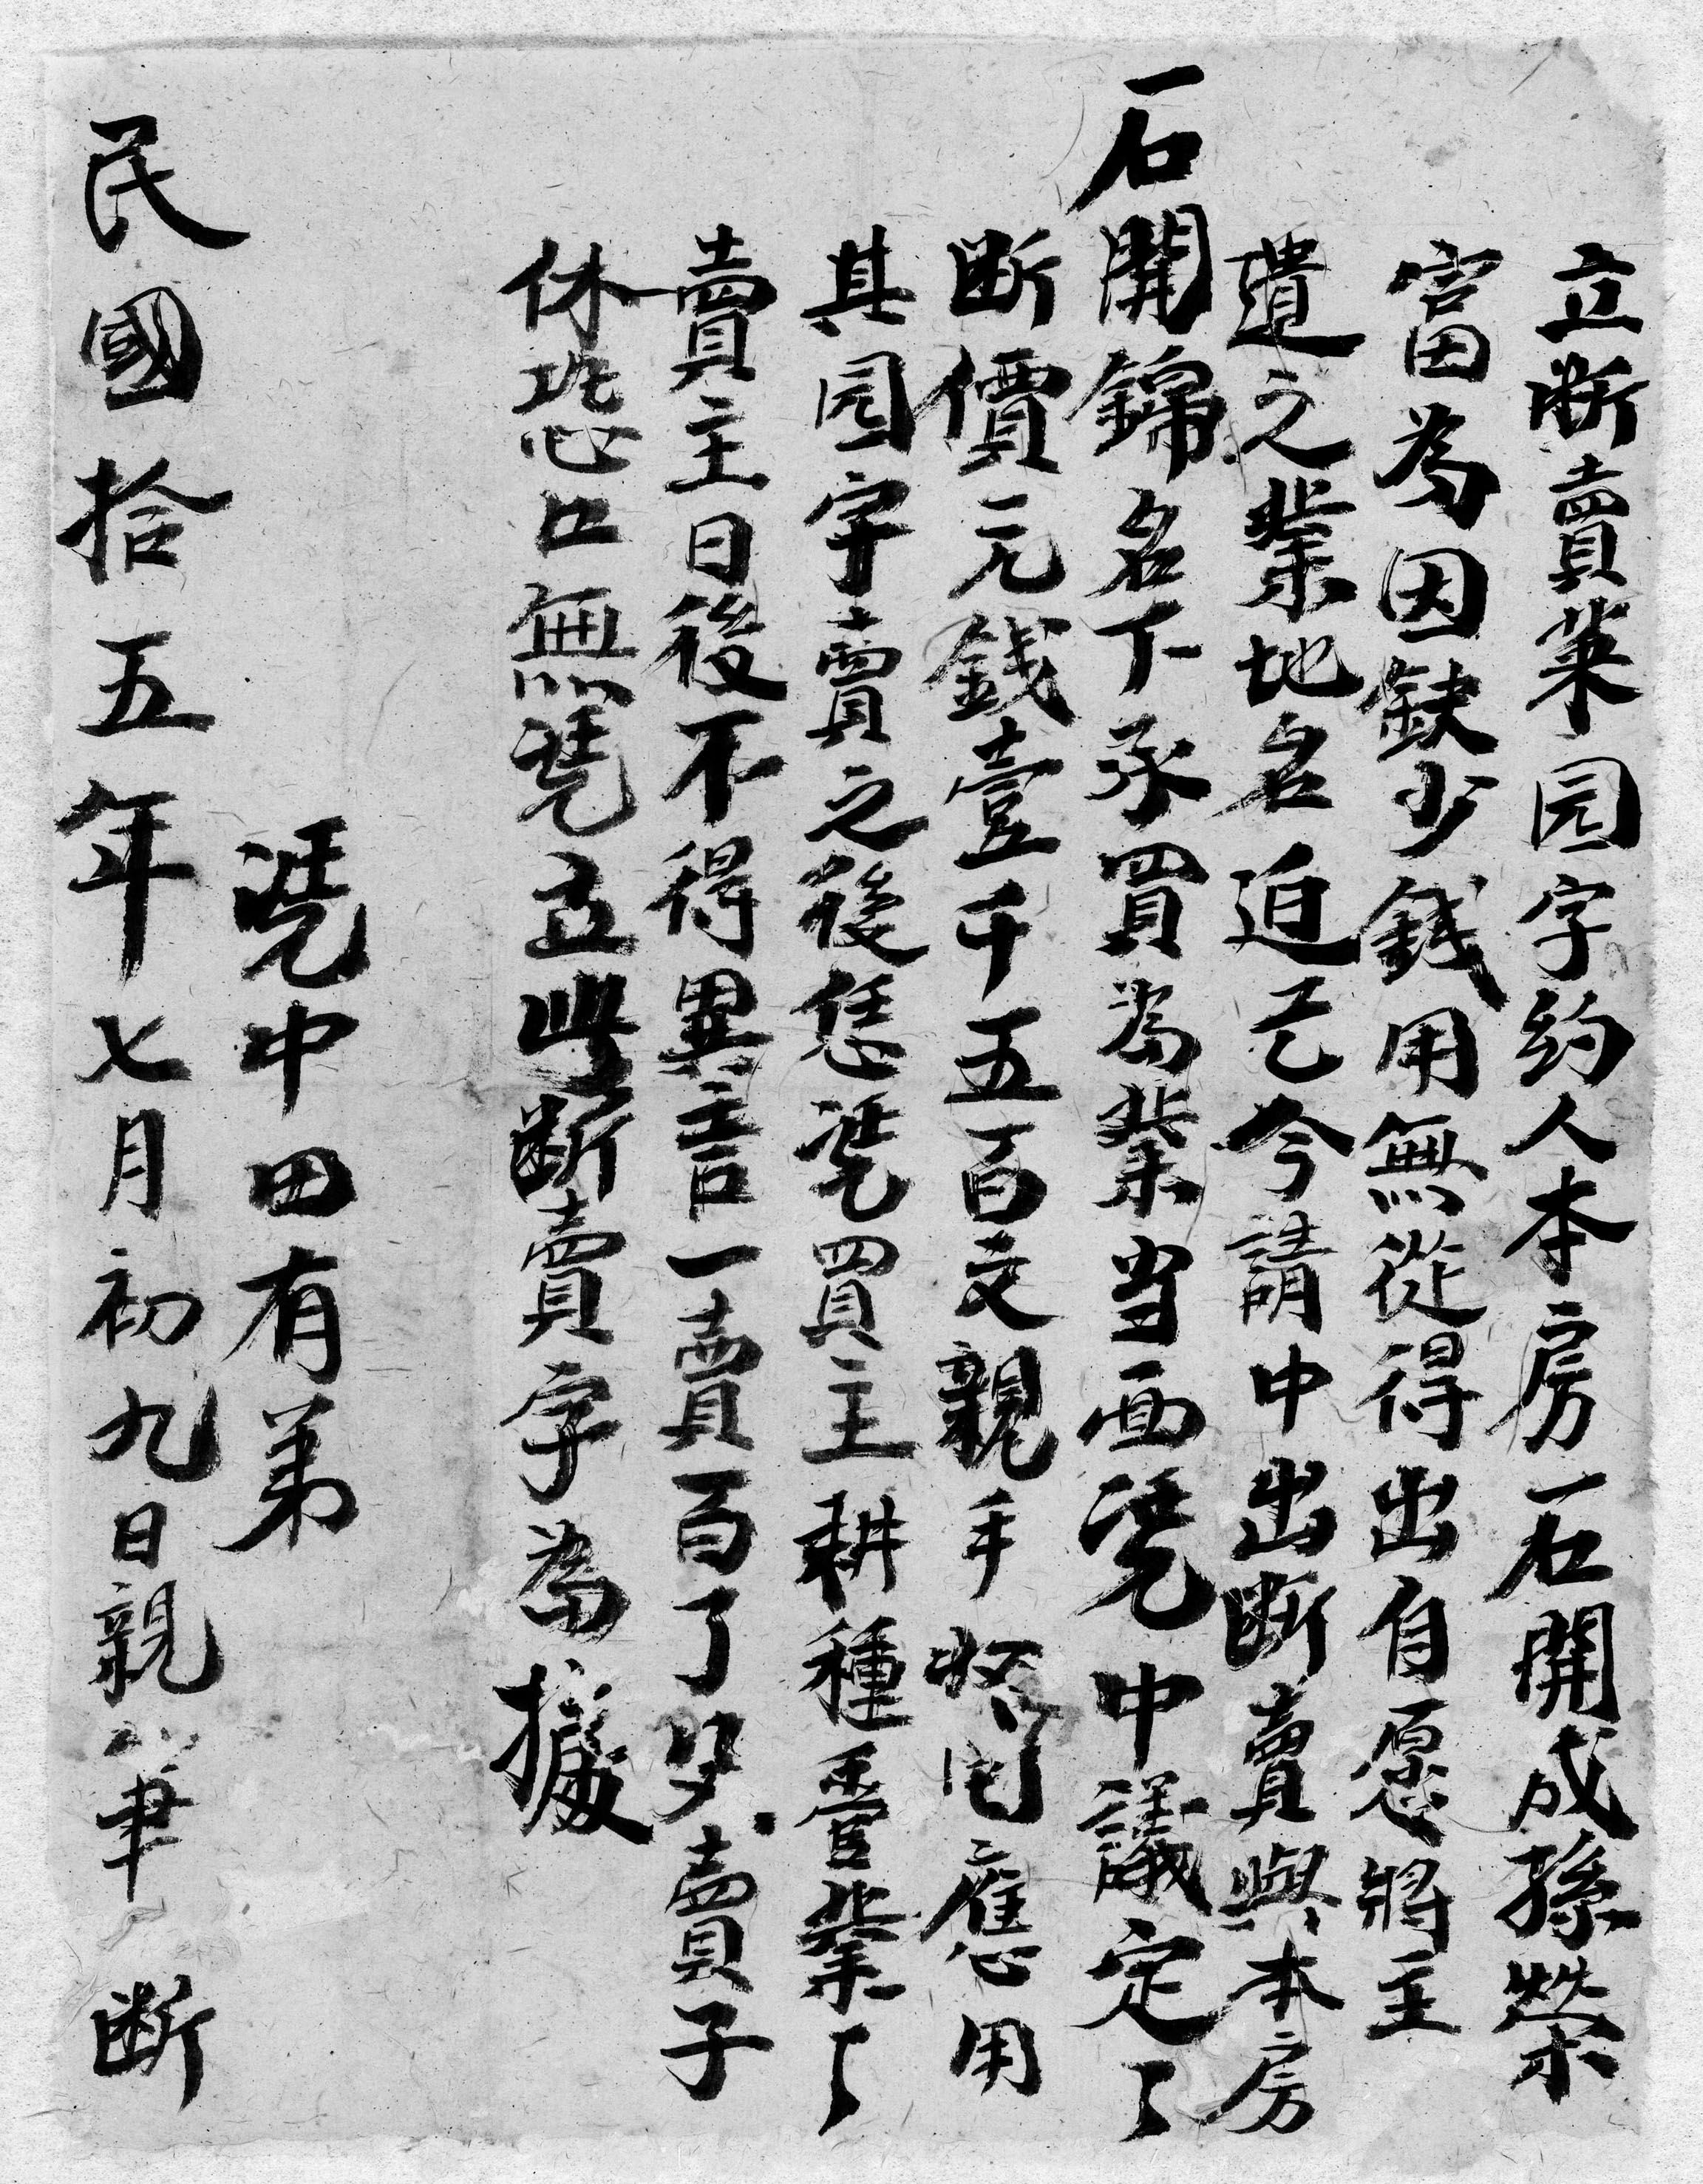 立断賣菜园字約人本房石開成孫榮
富為因缺少錢用無從得出自愿將主
遺之業地名迫己今請中出断賣與本房
石開錦名下承買為業当面凴中議定了
断價元錢壹千五百文親手応用
其园字賣之後恁凴買主耕種晉業了
賣主日後不得異言一賣百了父賣子
休恐口無凴立此断賣字為據
凴中田有弟
民國拾五年七月初九日親筆 断